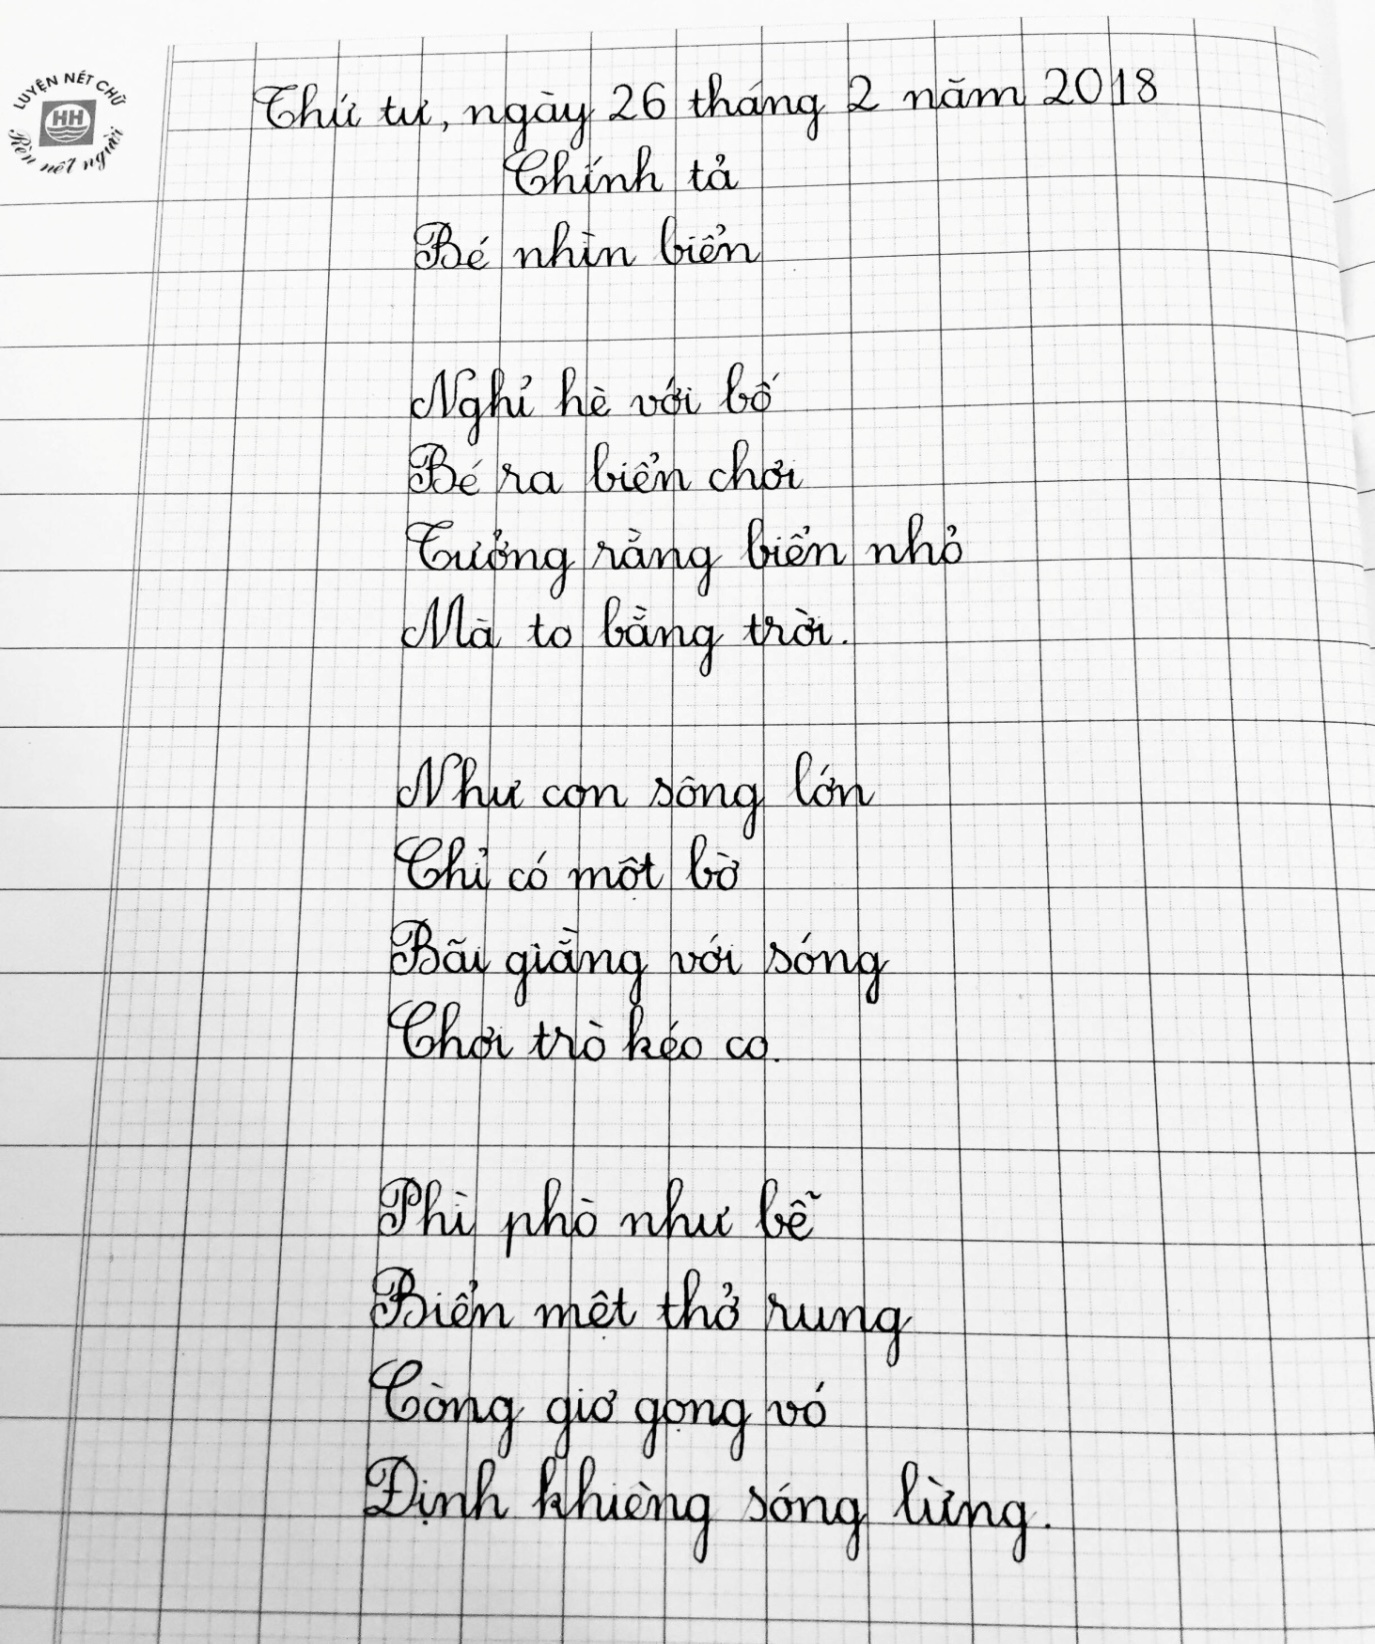 LUYỆN NÉT CHỮ
HH
Rèn nết người
Thứ tư, ngày 26 tháng 2 năm 2018
Chính tả
Bé nhìn biển
Nghỉ hè với bố
Bé ra biển chơi
Tưởng rằng biển nhỏ
Mà to bằng trời.
Như con sông lớn
Chỉ có một bờ
Bãi giằng với sóng
Chơi trò kéo co.
Phì phò như bễ
Biển mệt thở rung
Còng giơ gọng vó
Định khiêng sóng lừng.